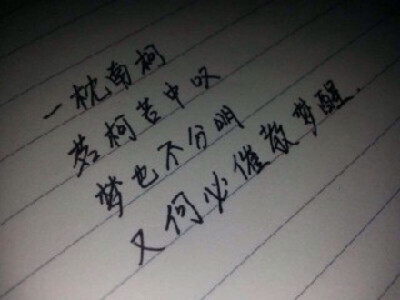 一枕南柯
若柯苦中叹
梦也不分明
又何必催散梦醒.